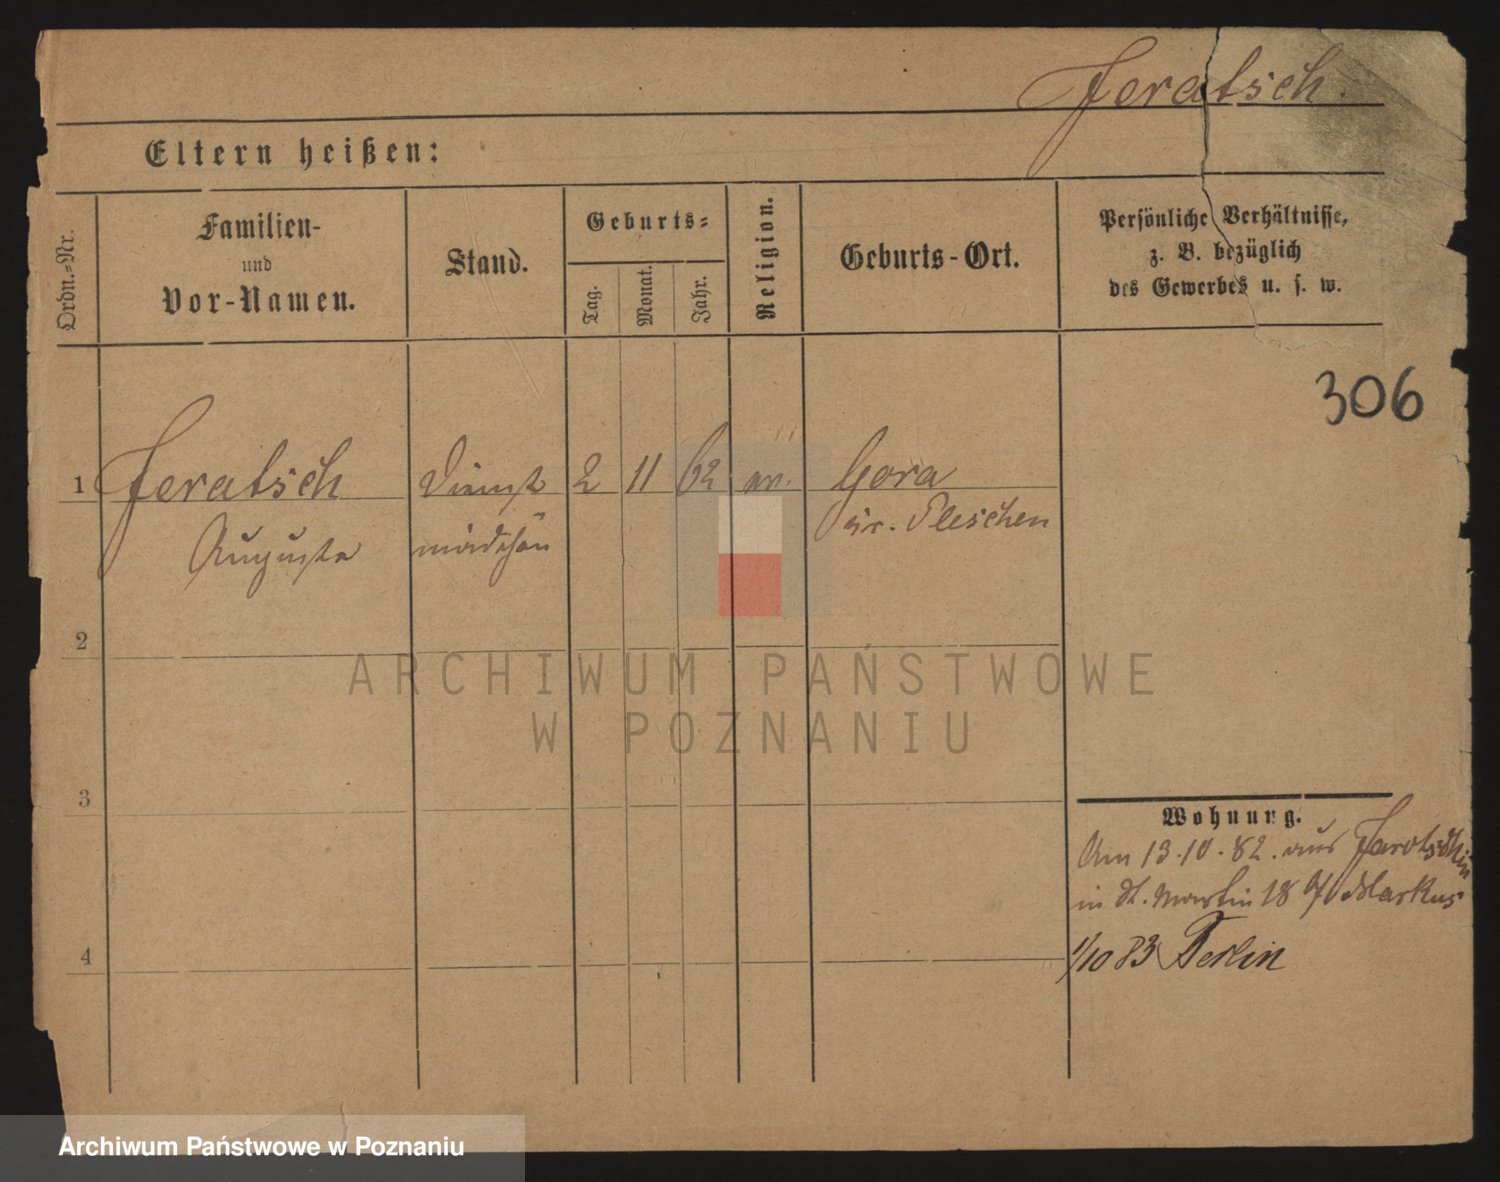 Jeratsch.
Eltern heißen:
Ordn.-Nr.
Familien-
und
Vor-Namen.
Stand.
Geburts-
Tag.
Monat.
Jahr.
Religion.
Geburts-Ort.
Persönliche Verhältnisse,
z. B. bezüglich
des Gewerbes u. s. w.
306
1 Jeratsch Dienst 2 11 62 ev. Gora
Auguste mädchen Kr. Pleschen
2
3
4
Wohnung.
Am 13.10.82. aus Jarotschin
in St. Martin 18 Markus
1/10 83 Berlin
ARCHIWUM PAŃSTWOWE
W POZNANIU
Archiwum Państwowe w Poznaniu